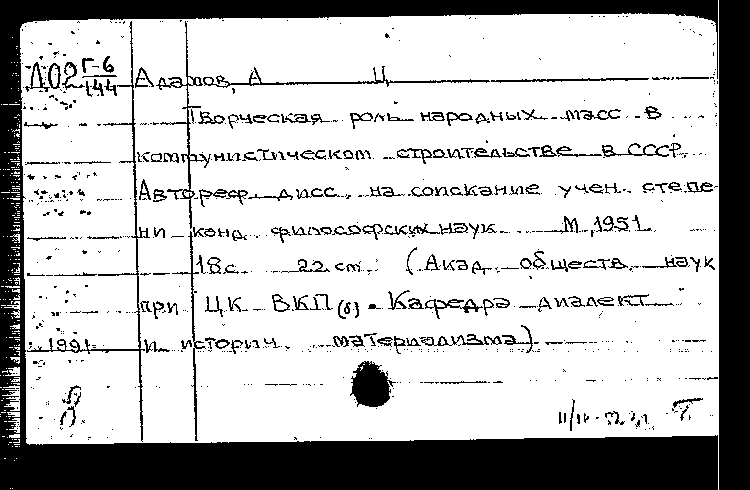 Л02 Г-6/144 Адамов, А Ц
Творческая роль народных масс в
коммунистическом строительстве в СССР.
Автореф. дисс. на соискание учен. степе
ни канд. философских наук М, 1951
18с 22 см. (Акад. обществ. наук
при ЦК ВКП(б). Кафедра диалект
и историч. материализма)
8